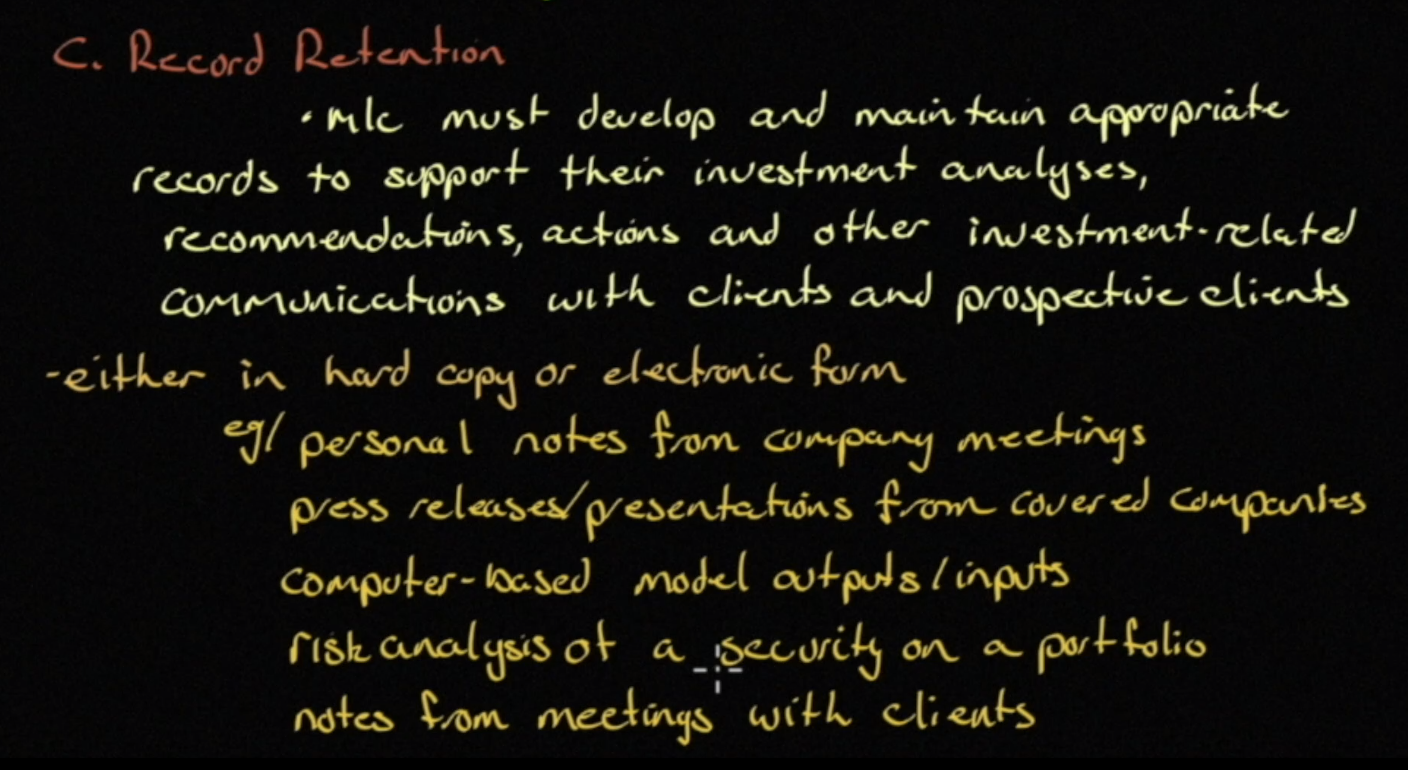 C. Record Retention
• M/C must develop and maintain appropriate
records to support their investment analyses,
recommendations, actions and other investment-related
communications with clients and prospective clients
-either in hard copy or electronic form
eg/ personal notes from company meetings
press releases/presentations from covered companies
computer-based model outputs/inputs
risk analysis of a security on a portfolio
notes from meetings with clients